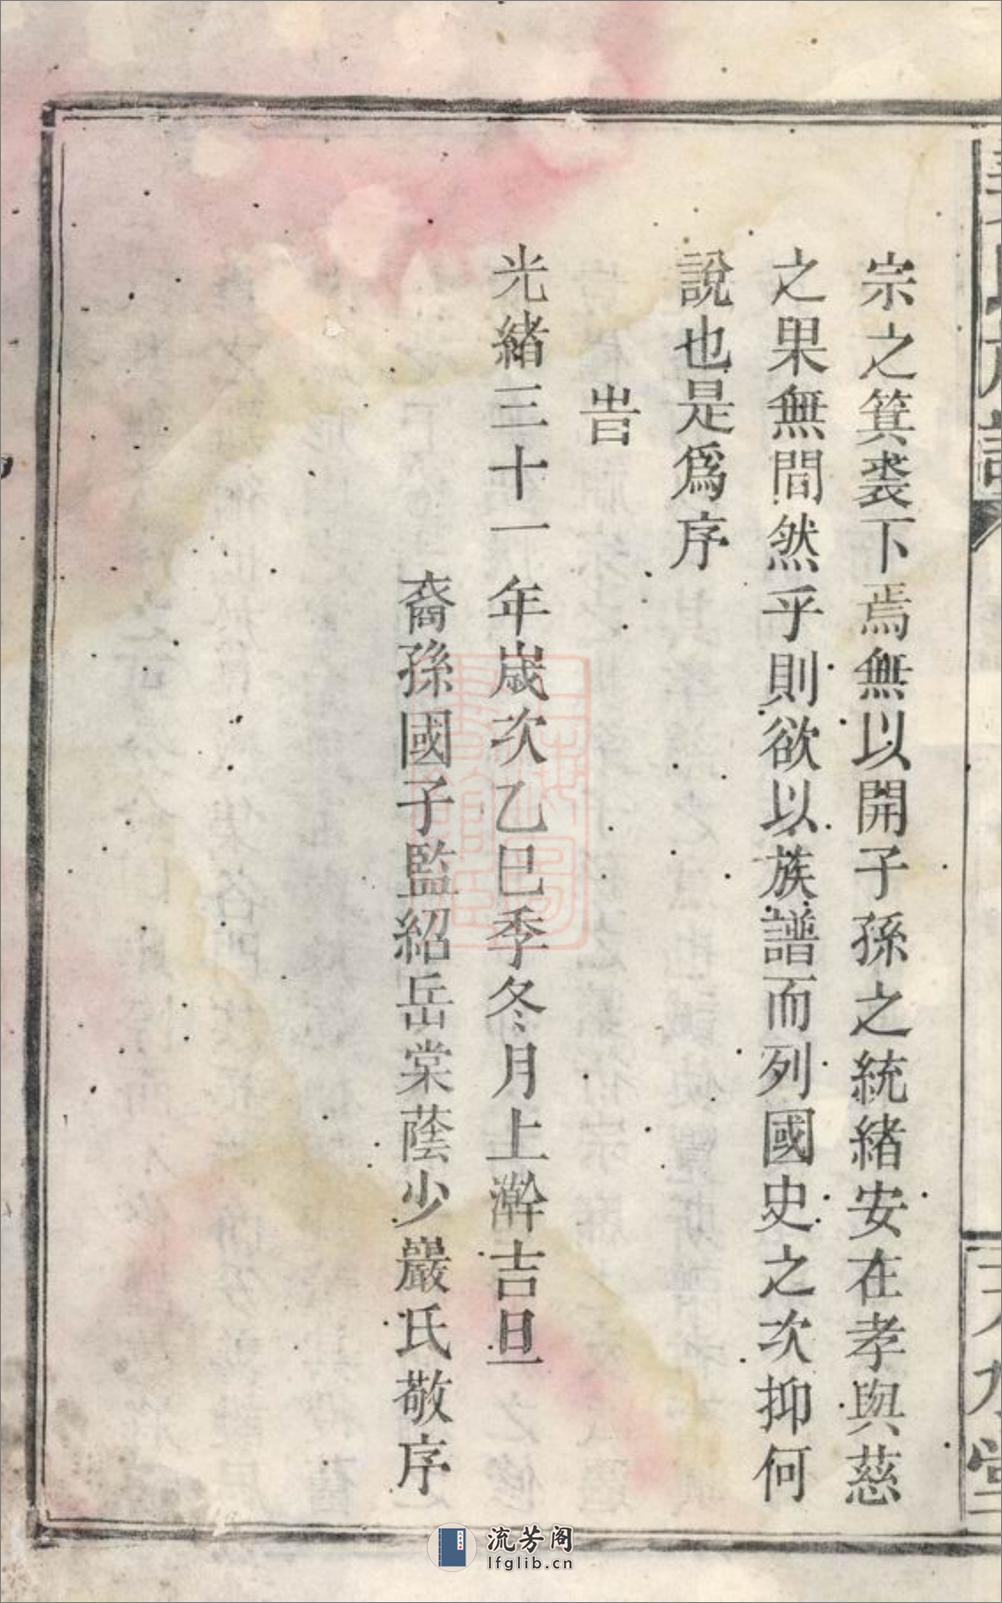 宗之箕裘下焉無以開子孫之統緒安在孝與慈
之果無間然乎則欲以族譜而列國史之次抑何
說也是爲序
旹
光緒三十一年歲次乙巳季冬月上澣吉旦
裔孫國子監紹岳棠蔭少巖氏敬序
流芳阁
lfglib.cn